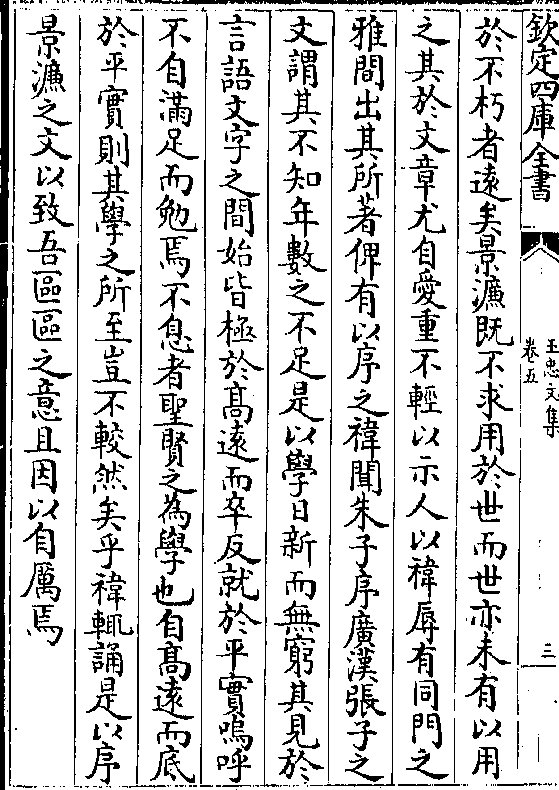 欽定四庫全書
王忠文集
卷五
三
於不朽者遠矣景濂既不求用於世而世亦未有以用
之其於文章尤自愛重不輕以示人以禕辱有同門之
雅間出其所著俾有以序之禕聞朱子序廣漢張子之
文謂其不知年數之不足是以學日新而無窮其見於
言語文字之間始皆極於髙遠而卒反就於平實嗚呼
不自滿足而勉焉不息者聖賢之為學也自髙遠而底
於平實則其學之所至豈不較然矣乎禕輒誦是以序
景濂之文以致吾區區之意且因以自厲焉